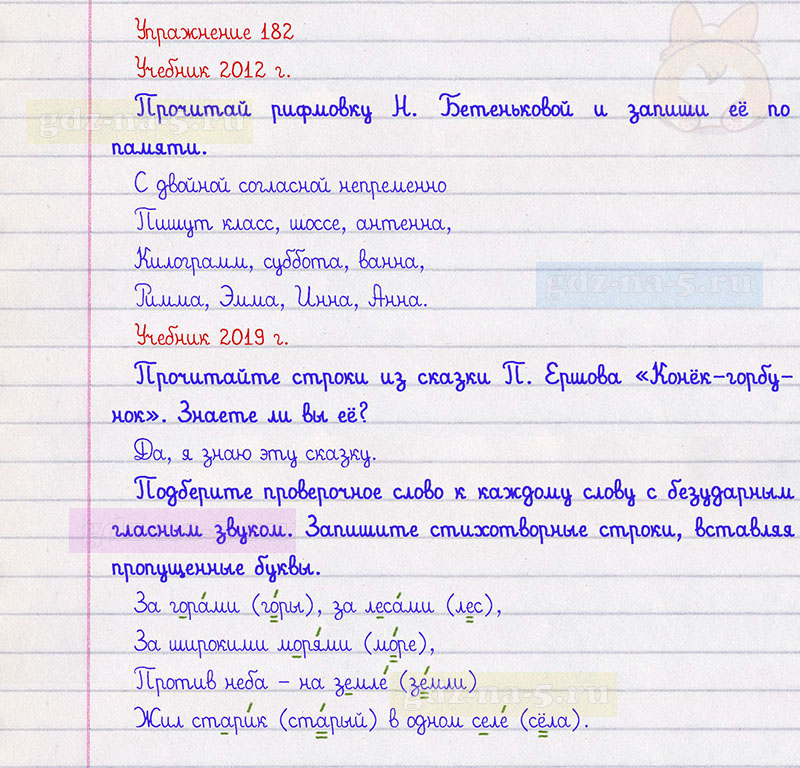 Упражнение 182
Учебник 2012 г.
Прочитай рифмовку Н. Бетеньковой и запиши её по
памяти.
С двойной согласной непременно
Пишут класс, шоссе, антенна,
Килограмм, суббота, ванна,
Римма, Эмма, Инна, Анна.
gdz-na-5.ru
Учебник 2019 г.
Прочитайте строки из сказки П. Ершова «Конёк-горбу-
нок». Знаете ли вы её?
Да, я знаю эту сказку.
Подберите проверочное слово к каждому слову с безударным
гласным звуком. Запишите стихотворные строки, вставляя
пропущенные буквы.
За гора́ми (го́ры), за леса́ми (лес),
За широкими моря́ми (мо́ре),
Против неба – на земле́ (зе́мли)
gdz-na-5.ru
Жил стари́к (ста́рый) в одном селе́ (сёла).